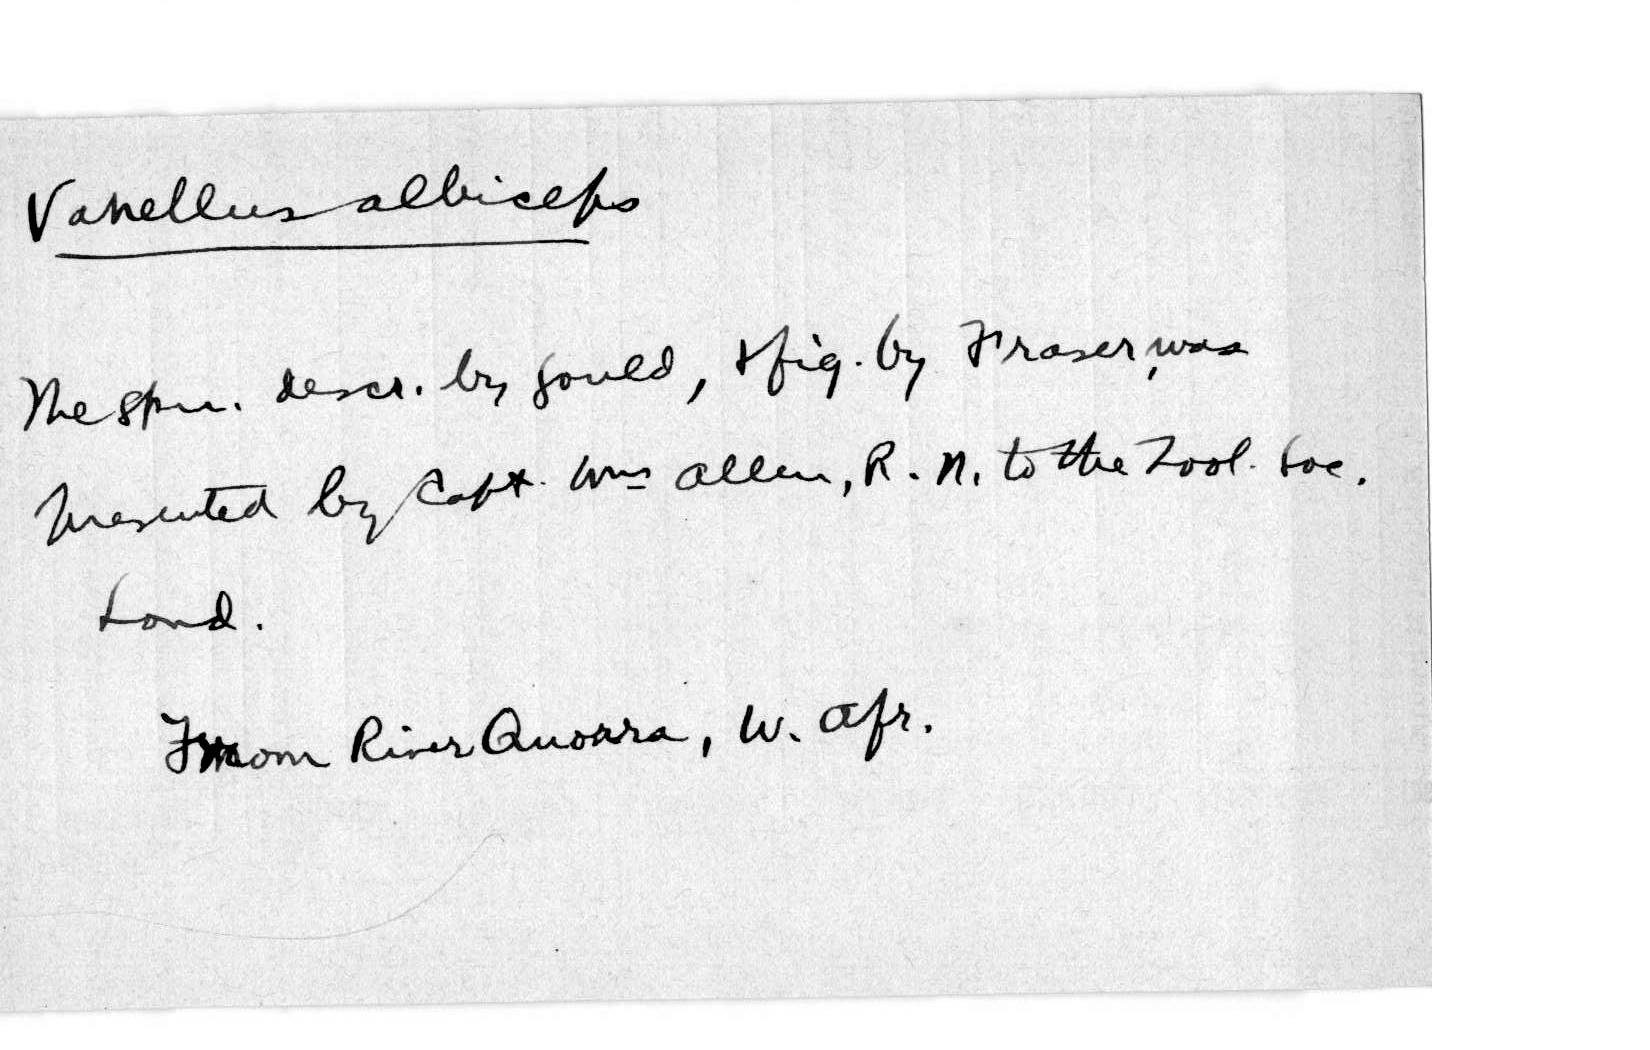 Vanellus albiceps
The spm. descr. by Gould, & fig. by Fraser, was
presented by Capt. Wm Allen, R.N. to the Zool. Soc.
Lond.
From River Quorra, W. Afr.